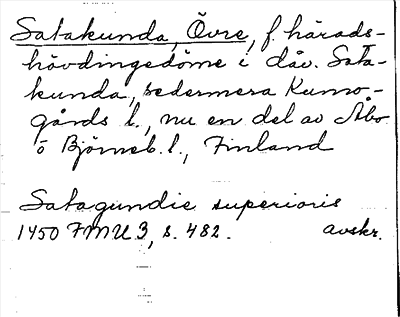 Satakunda, Övre, f. härads-
hövdingedöme i dåv. Sata-
kunda, sedermera Kumo-
gårds l., nu en del av Åbo
o Björneb. l., Finland
Satagundie superioris
1450 FMU 3, s. 482. avskr.